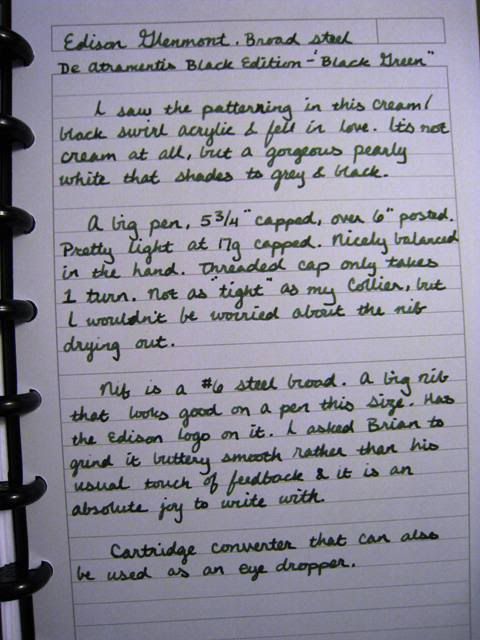 Edison Glenmont. Broad steel
De Atramentis Black Edition - "Black Green"
I saw the patterning in this cream/
black swirl acrylic & fell in love. It's not
cream at all, but a gorgeous pearly
white that shades to grey & black.
A big pen, 5 3/4" capped, over 6" posted.
Pretty light at 17g capped. Nicely balanced
in the hand. Threaded cap only takes
1 turn. Not as "tight" as my Collier, but
I wouldn't be worried about the nib
drying out.
Nib is a #6 steel broad. A big nib
that looks good on a pen this size. Has
the Edison logo on it. I asked Brian to
grind it buttery smooth rather than his
usual touch of feedback & it is an
absolute joy to write with.
Cartridge converter that can also
be used as an eye dropper.